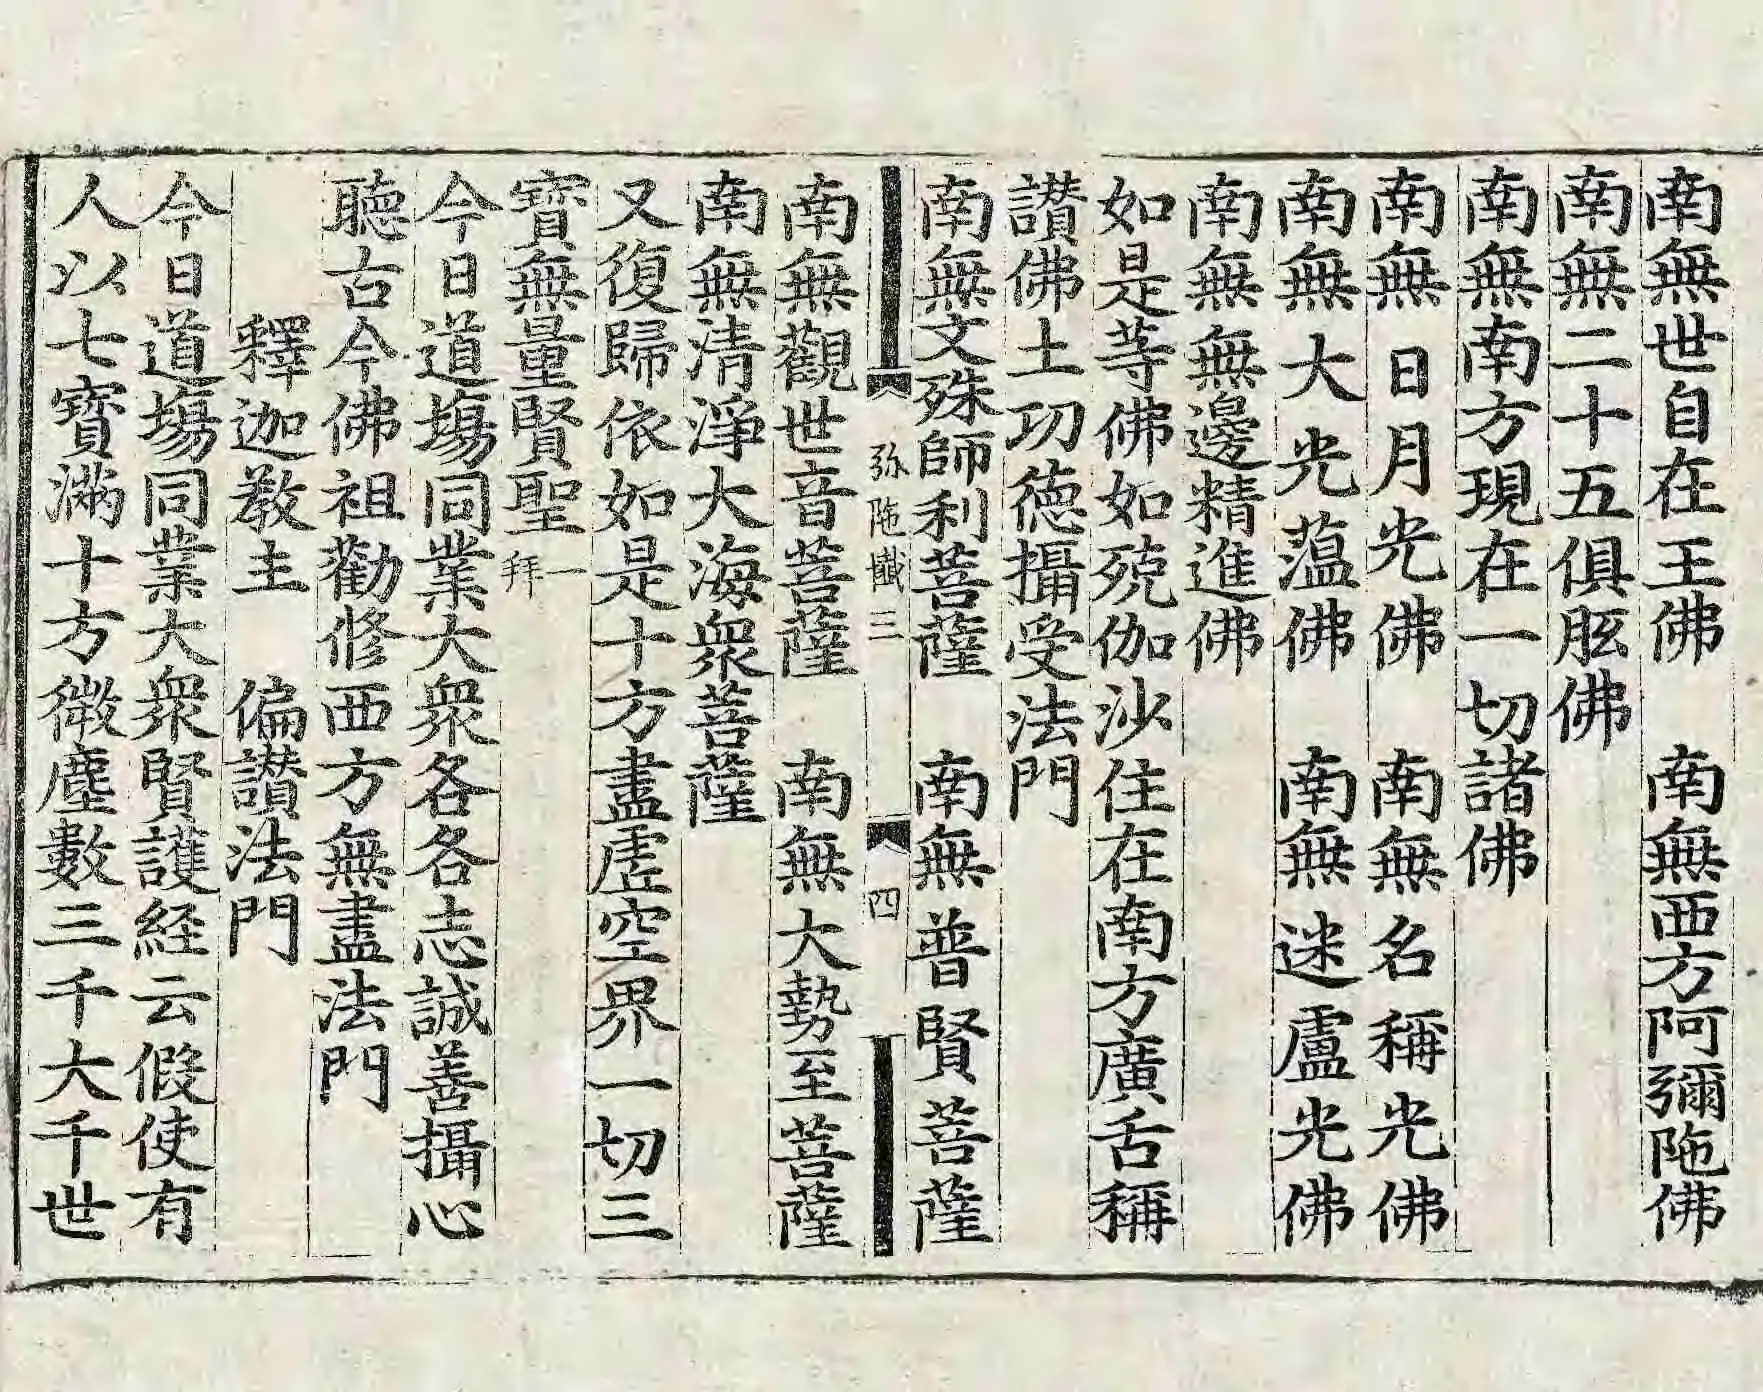 南無世自在王佛　南無西方阿彌陁佛
南無二十五俱胝佛
南無南方現在一切諸佛
南無日月光佛　南無名稱光佛
南無大光蕰佛　南無迷盧光佛
南無無邊精進佛
如是等佛如殑伽沙住在南方廣舌稱
讃佛土功德攝受法門
南無文殊師利菩薩　南無普賢菩薩
弥陁懴三　四
南無觀世音菩薩　南無大勢至菩薩
南無清淨大海衆菩薩
又復歸依如是十方盡虗空界一切三
寶無量賢聖一拜
今日道塲同業大衆各各志誠善攝心
聽古今佛祖勸修西方無盡法門
釋迦教主　偏讃法門
今日道塲同業大衆賢護経云假使有
人以七寶滿十方微塵數三千大千世